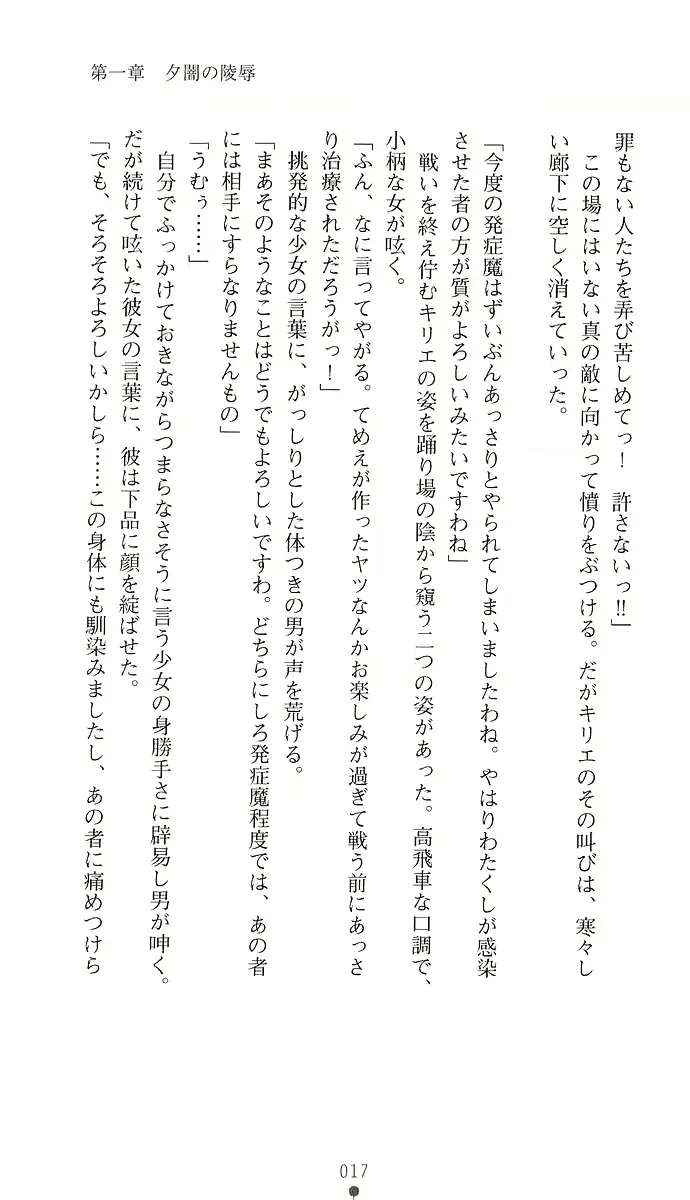 第一章　夕闇の陵辱
罪もない人たちを弄び苦しめてっ！　許さないっ!!」
　この場にはいない真の敵に向かって憤りをぶつける。だがキリエのその叫びは、寒々し
い廊下に空しく消えていった。
「今度の発症魔はずいぶんあっさりとやられてしまいましたわね。やはりわたくしが感染
させた者の方が質がよろしいみたいですわね」
　戦いを終え佇むキリエの姿を踊り場の陰から窺う二つの姿があった。高飛車な口調で、
小柄な女が呟く。
「ふん、なに言ってやがる。てめえが作ったヤツなんかお楽しみが過ぎて戦う前にあっさ
り治療されただろうがっ！」
　挑発的な少女の言葉に、がっしりとした体つきの男が声を荒げる。
「まあそのようなことはどうでもよろしいですわ。どちらにしろ発症魔程度では、あの者
には相手にすらなりませんもの」
「うむぅ……」
　自分でふっかけておきながらつまらなさそうに言う少女の身勝手さに辟易し男が呻く。
だが続けて呟いた彼女の言葉に、彼は下品に顔を綻ばせた。
「でも、そろそろよろしいかしら……この身体にも馴染みましたし、あの者に痛めつけら
017